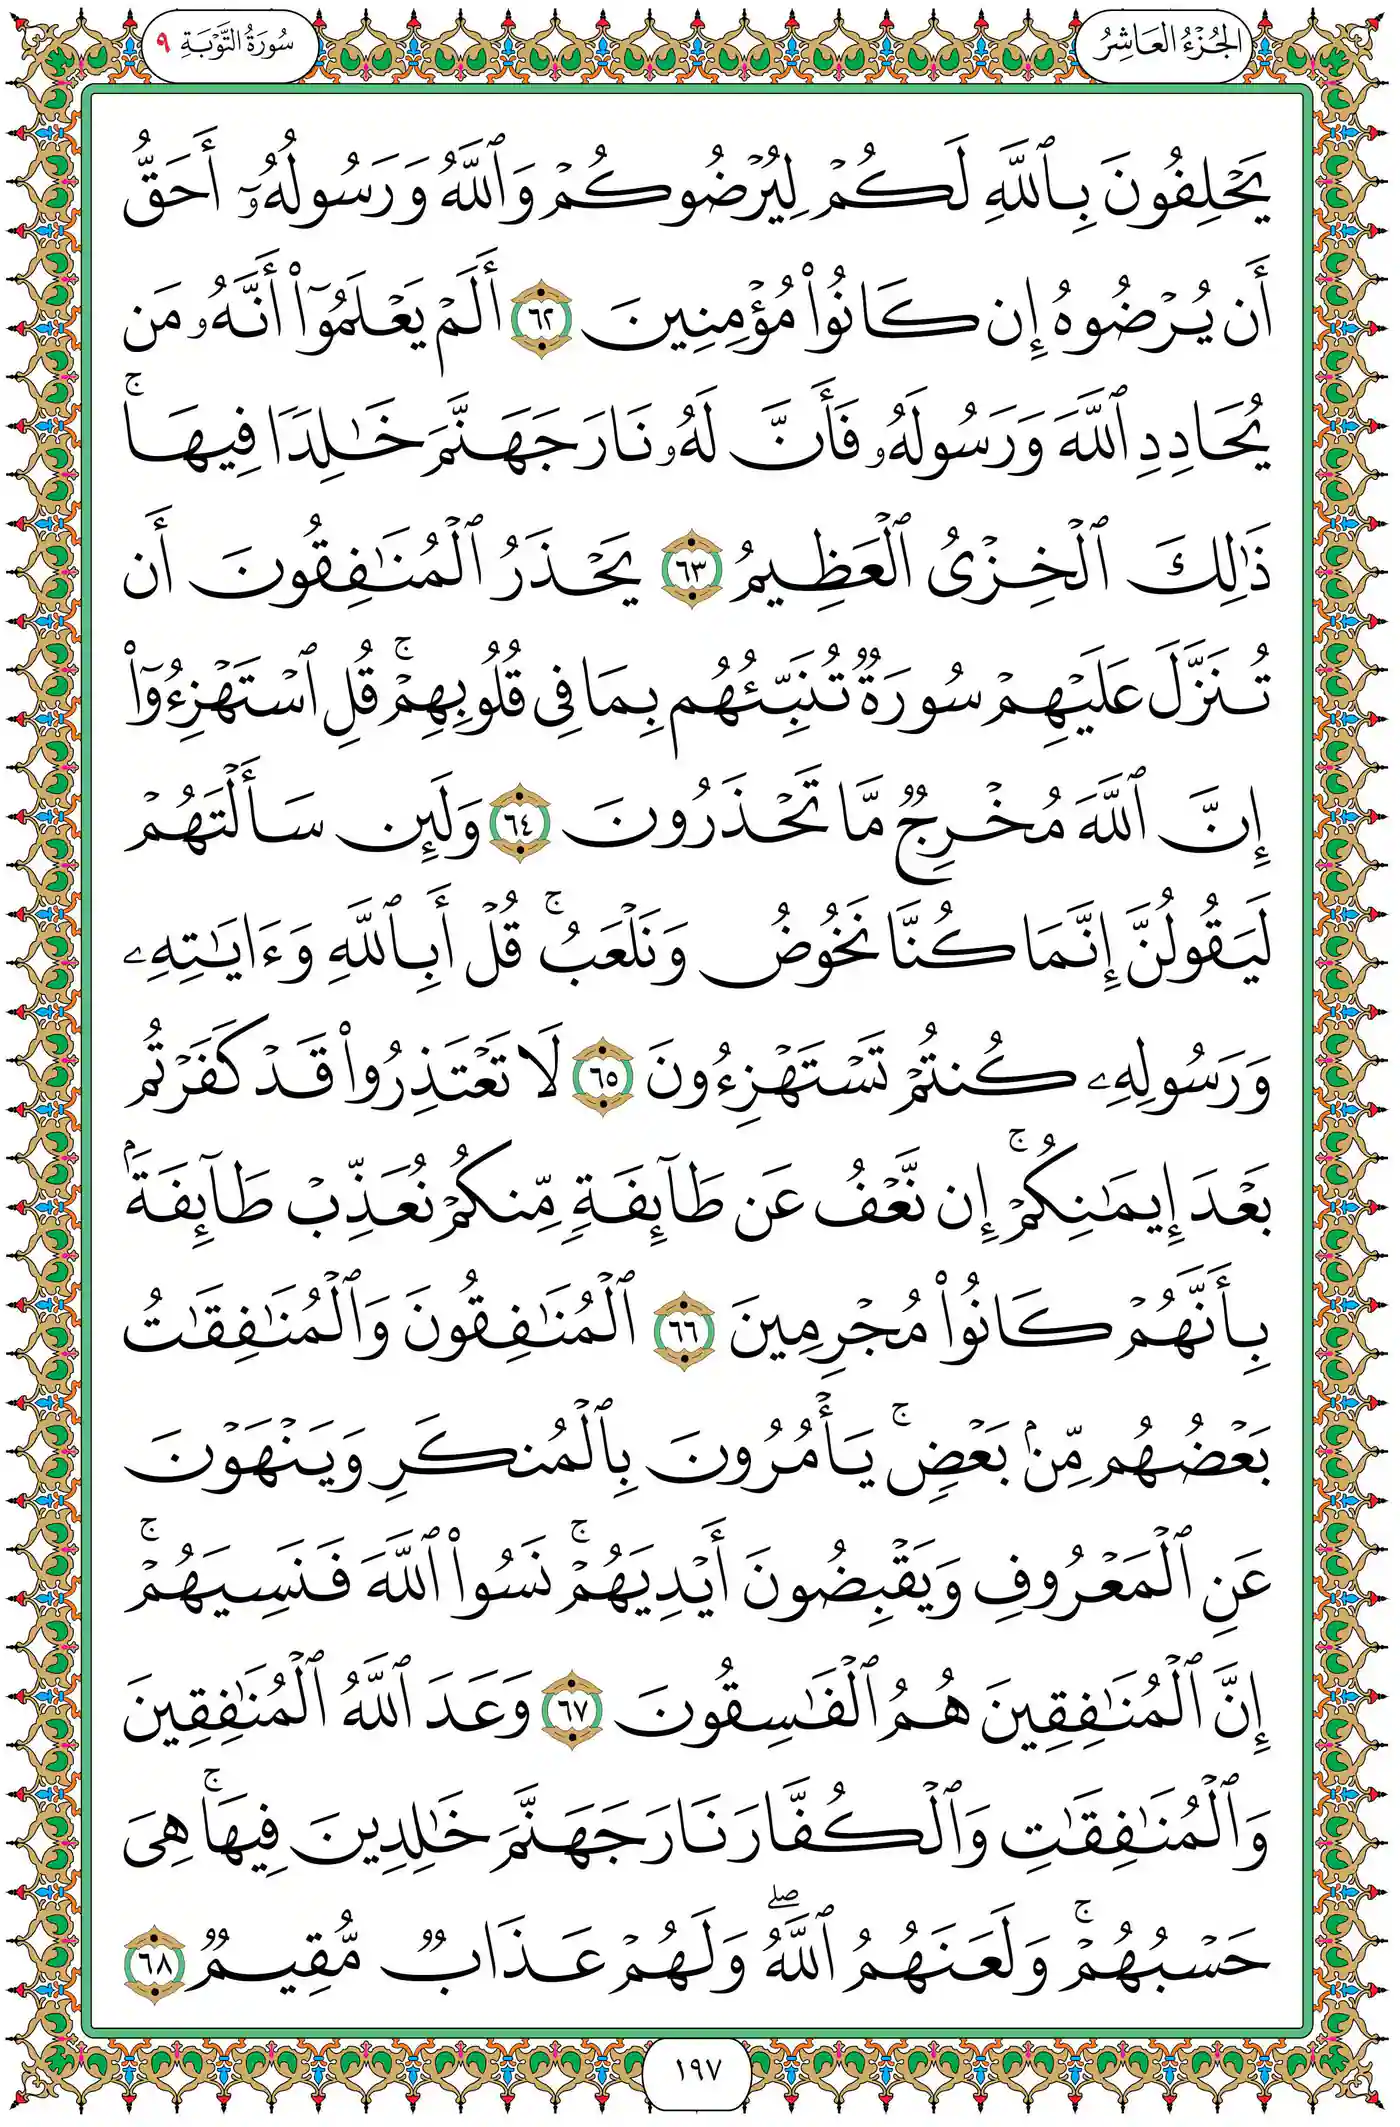 الجُزْءُ العَاشِرُ
سُورَةُ التَّوْبَةِ ٩
يَحْلِفُونَ بِٱللَّهِ لَكُمْ لِيُرْضُوكُمْ وَٱللَّهُ وَرَسُولُهُۥٓ أَحَقُّ
أَن يُرْضُوهُ إِن كَانُوا۟ مُؤْمِنِينَ ٦٢ أَلَمْ يَعْلَمُوٓا۟ أَنَّهُۥ مَن
يُحَادِدِ ٱللَّهَ وَرَسُولَهُۥ فَأَنَّ لَهُۥ نَارَ جَهَنَّمَ خَـٰلِدًا فِيهَا ۚ
ذَٰلِكَ ٱلْخِزْىُ ٱلْعَظِيمُ ٦٣ يَحْذَرُ ٱلْمُنَـٰفِقُونَ أَن
تُنَزَّلَ عَلَيْهِمْ سُورَةٌ تُنَبِّئُهُم بِمَا فِى قُلُوبِهِمْ ۚ قُلِ ٱسْتَهْزِءُوٓا۟
إِنَّ ٱللَّهَ مُخْرِجٌ مَّا تَحْذَرُونَ ٦٤ وَلَئِن سَأَلْتَهُمْ
لَيَقُولُنَّ إِنَّمَا كُنَّا نَخُوضُ وَنَلْعَبُ ۚ قُلْ أَبِٱللَّهِ وَءَايَـٰتِهِۦ
وَرَسُولِهِۦ كُنتُمْ تَسْتَهْزِءُونَ ٦٥ لَا تَعْتَذِرُوا۟ قَدْ كَفَرْتُم
بَعْدَ إِيمَـٰنِكُمْ ۚ إِن نَّعْفُ عَن طَآئِفَةٍ مِّنكُمْ نُعَذِّبْ طَآئِفَةَۢ
بِأَنَّهُمْ كَانُوا۟ مُجْرِمِينَ ٦٦ ٱلْمُنَـٰفِقُونَ وَٱلْمُنَـٰفِقَـٰتُ
بَعْضُهُم مِّنۢ بَعْضٍ ۚ يَأْمُرُونَ بِٱلْمُنكَرِ وَيَنْهَوْنَ
عَنِ ٱلْمَعْرُوفِ وَيَقْبِضُونَ أَيْدِيَهُمْ ۚ نَسُوا۟ ٱللَّهَ فَنَسِيَهُمْ ۚ
إِنَّ ٱلْمُنَـٰفِقِينَ هُمُ ٱلْفَـٰسِقُونَ ٦٧ وَعَدَ ٱللَّهُ ٱلْمُنَـٰفِقِينَ
وَٱلْمُنَـٰفِقَـٰتِ وَٱلْكُفَّارَ نَارَ جَهَنَّمَ خَـٰلِدِينَ فِيهَا ۚ هِىَ
حَسْبُهُمْ ۚ وَلَعَنَهُمُ ٱللَّهُ ۖ وَلَهُمْ عَذَابٌ مُّقِيمٌ ٦٨
١٩٧